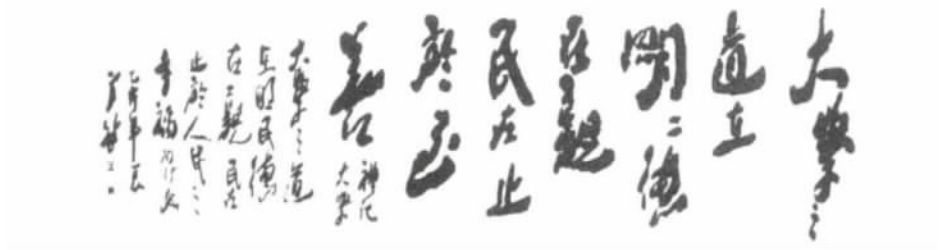 大學之
道在
明〻德
在親
民在止
於至
善
禮記
大學
大學之道
在明民德
在親民在
止於人民之
幸福